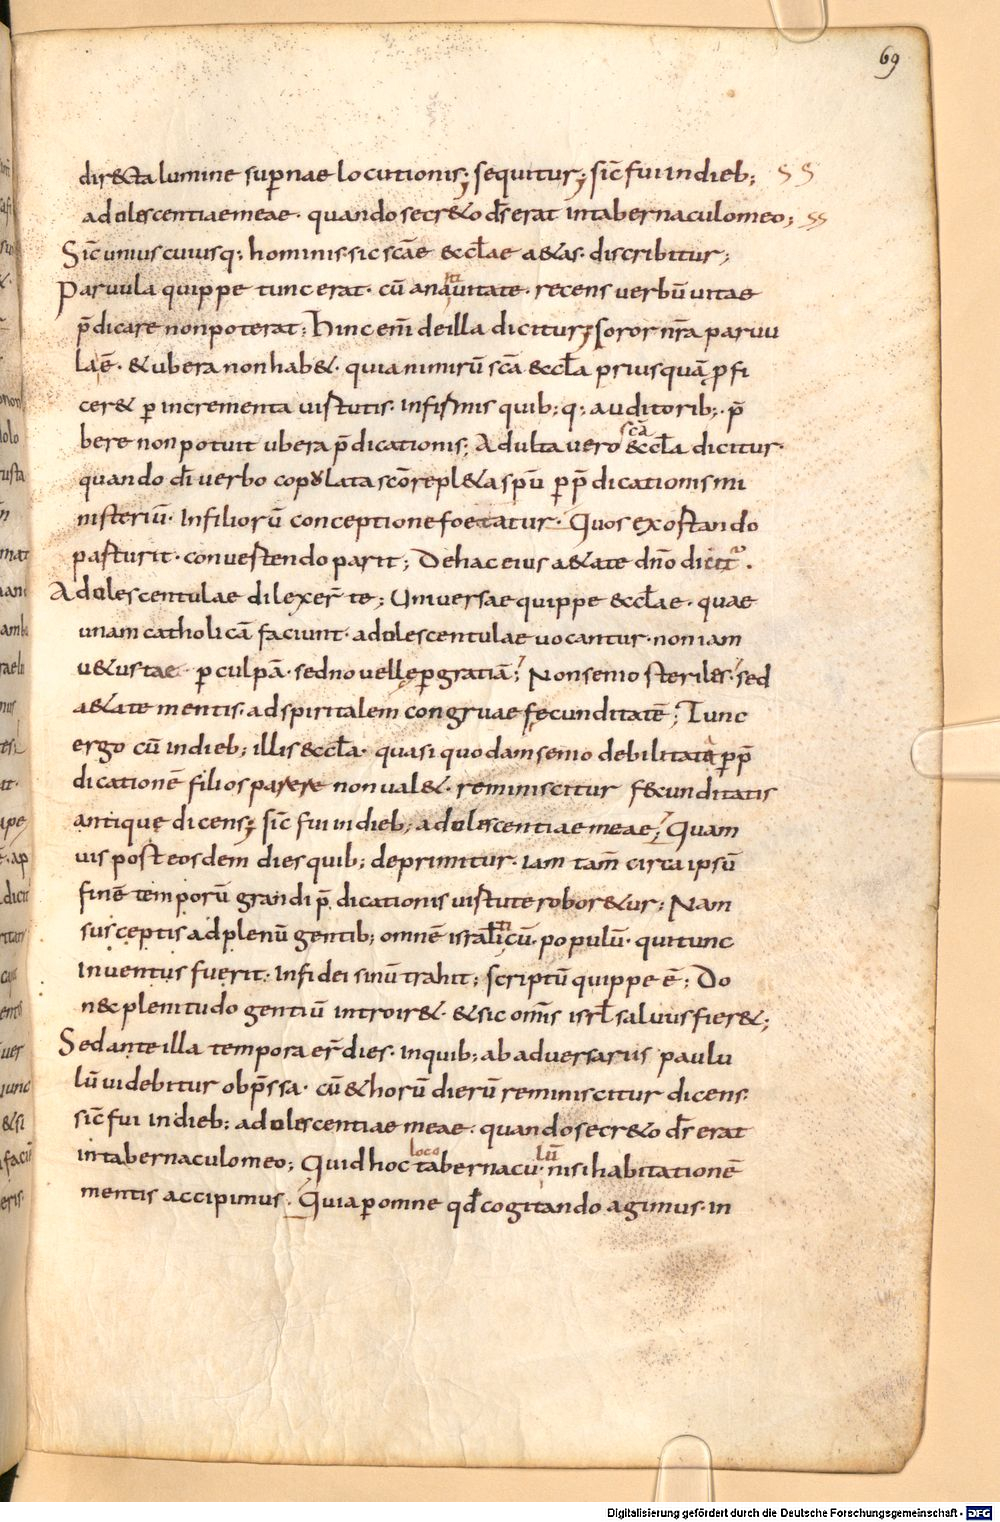 69
dir&cta lumine supernae locutionis; sequitur; sic̄ fui in dieb;
adolescentiae meae. quando secr&o dꝭ erat in tabernaculo meo;
Sic̄ unius cuiusq; hominis. sic scāe &ccłae a&as. discribitur;
Paruula quippe tunc erat. cū a natiuitate. recens uerbū uitae
p̄dicare non poterat; Hinc eni̅ de illa dicitur; soror nr̄a paruu
la ē. & ubera non hab&. quia nimirū scā &ccła priusquā ꝓfi
cer& ꝑ incrementa uirtutis. infirmis quib; q; auditorib;. p̄
bere non potuit ubera p̄dicationis; Adulta uero scā &ccła dicitur.
quando dī uerbo copulata sc̄o repl&a sp̄u ꝑ p̄dicationis mi
nisteriū. In filiorū conceptione foetatur. Quos exortando
parturit. conuertendo parit; De hac eius a&ate dn̄o dicit̄.
Adolescentulae dilexer̄ te; Uniuersae quippe &ccłae. quae
unam catholicā faciunt. adolescentulae uocantur. non iam
u&ustae ꝑ culpā. sed nouellę ꝑ gratiā; Non senio steriles. sed
a&ate mentis. ad spiritalem congruae fecunditatē; Tunc
ergo cū in dieb; illis &ccła. quasi quodam senio debilitata ꝑ p̄
dicationē filios parere non ual&. reminiscitur fecunditatis
antique dicens; sic̄ fui in dieb; adolescentiae meae; Quam
uis post eosdem dies quib; deprimitur. iam tam̄ circa ipsū
finē temporū grandi p̄dicationis uirtute robor&ur; Nam
susceptis ad plenū gentib; omnē israł̄iticū. populū. qui tunc
inuentus fuerit. In fidei sinū trahit; scriptū quippe ē; Do
n&c plenitudo gentiū introir&. & sic om̄is isrł saluus fier&;
Sed ante illa tempora er̄ dies. in quib; ab aduersariis paulu
lū uidebitur obp̄ssa. cū & horū dierū reminiscitur dicens.
sic̄ fui in dieb; adolescentiae meae. quando secr&o dꝭ erat
in tabernaculo meo; Quid hoc loco tabernaculū. nisi habitationē
mentis accipimus. Quia ꝑ omne qđ cogitando agimus. in
Digitalisierung gefördert durch die Deutsche Forschungsgemeinschaft - DFG